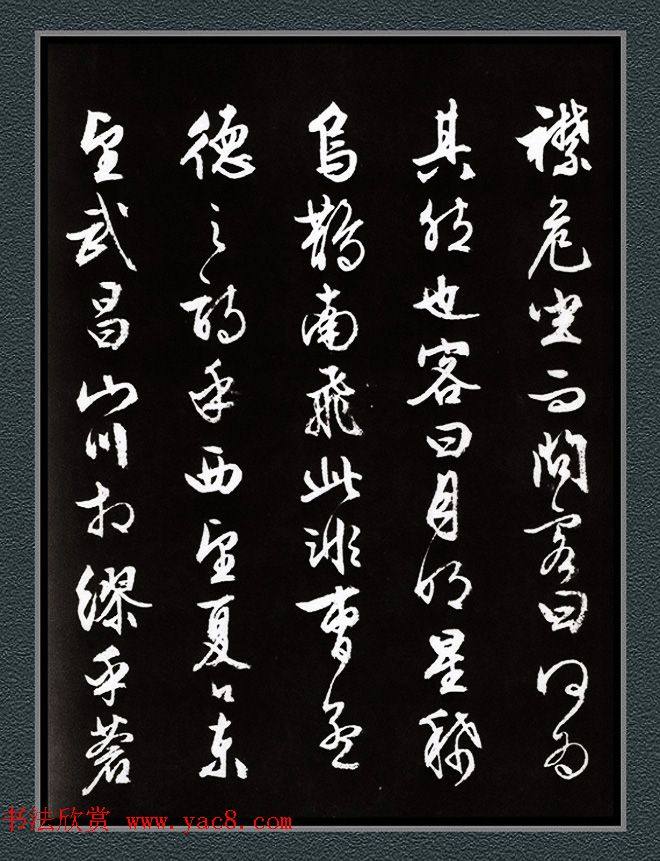 襟危坐而問客曰何為
其然也客曰月明星稀
烏鵲南飛此非曹孟
德之詩乎西望夏口東
望武昌山川相繆乎蒼
书法欣赏 www.yac8.com